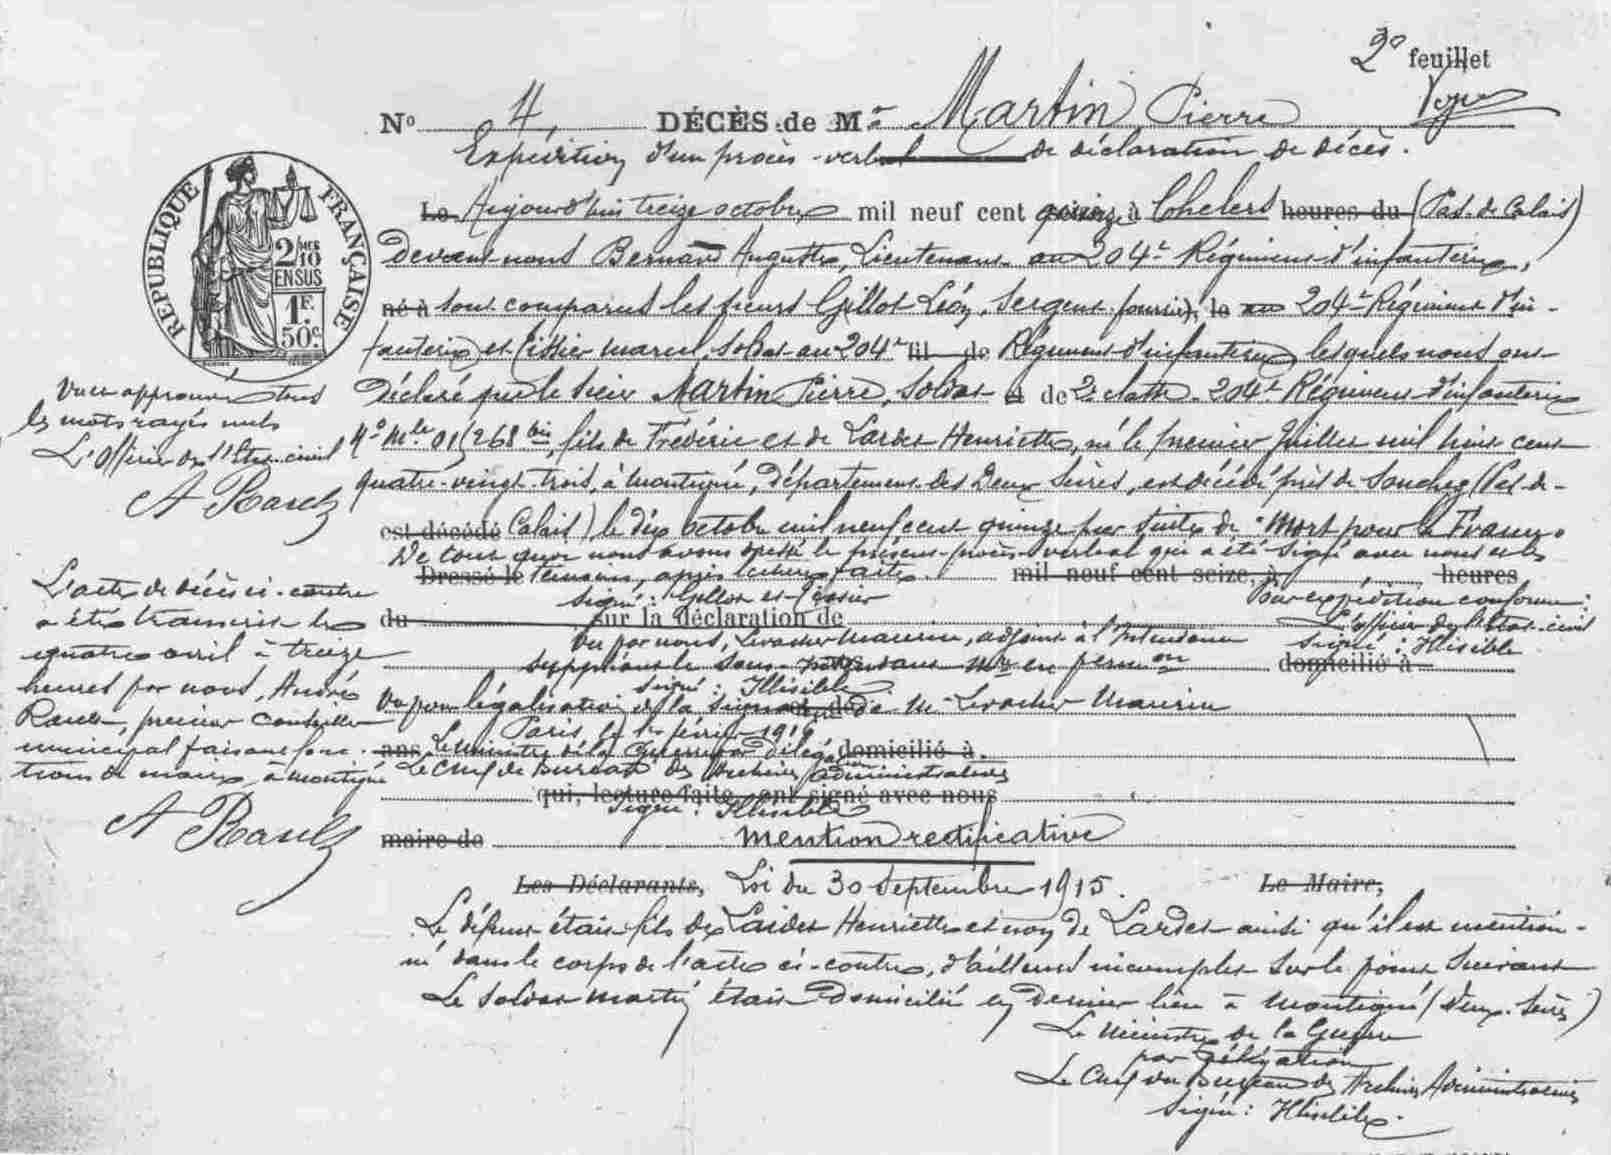 2e feuillet
No 4 DÉCÈS de Mr Martin Pierre
Expédition d'un procès-verbal de déclaration de décès.
RÉPUBLIQUE FRANÇAISE
2/10 EN SUS
1F. 50c.
Le Aujourd'hui treize octobre mil neuf cent quinze à Chelers heures du (Pas-de-Calais)
devant nous Bernard Auguste, Lieutenant au 204e Régiment d'infanterie,
né à sont comparus les sieurs Gillot Léon, Sergent fourrier, le au 204e Régiment d'in-
fanterie et Tissier Marcel, Soldat au 204e fil de Régiment d'infanterie lesquels nous ont
déclaré que le sieur Martin Pierre, Soldat à de 2e classe 204e Régiment d'infanterie
No Mle 01268 bis, fils de Frédéric et de Lardet Henriette, né le premier Juillet mil huit cent
quatre-vingt-trois, à Montigné, département des Deux Sèvres, est décédé près de Souchez (Pas-de-
est décédé Calais) le dix octobre mil neuf cent quinze par suite de "Mort pour la France"
De tout quoi nous avons dressé le présent procès-verbal qui a été signé avec nous et les
Dressé le témoins, après lecture faite. mil neuf cent seize, à heures
signé: Gillot et Tissier Pour expédition conforme:
du sur la déclaration de L'officier de l'Etat-civil
Vu par nous, Levacher Maurice, adjoint à l'Intendance signé: Illisible
suppléant le Sous- domicilié à
signé: Illisible
Vu pour légalisation de la signature de de M. Levacher Maurice
Paris, le 1er février 1919
ans Le Ministre de la Guerre par délégation domicilié à
Le Chef de Bureau des Archives administratives
qui, lecture faite, ont signé avec nous
Signé: Illisible
maire de mention rectificative
Les Déclarants, Loi du 30 Septembre 1915. Le Maire,
Le défunt était fils de Laidet Henriette et non de Lardet ainsi qu'il est mention-
né dans le corps de l'acte ci-contre, d'ailleurs incomplet sur le point suivant
Le Soldat Martin était domicilié en dernier lieu à Montigné (Deux-Sèvres)
Le Ministre de la Guerre
par délégation
Le Chef du Bureau des Archives Administratives
Signé: Illisible.
Vu et approuvé tous
les mots rayés nuls
L'Officier de l'Etat-civil
L'acte de décès ci-contre
a été transcrit le
quatre avril à treize
heures par nous, André
premier Conseiller
municipal faisant fonc-
tions de maire, à Montigné